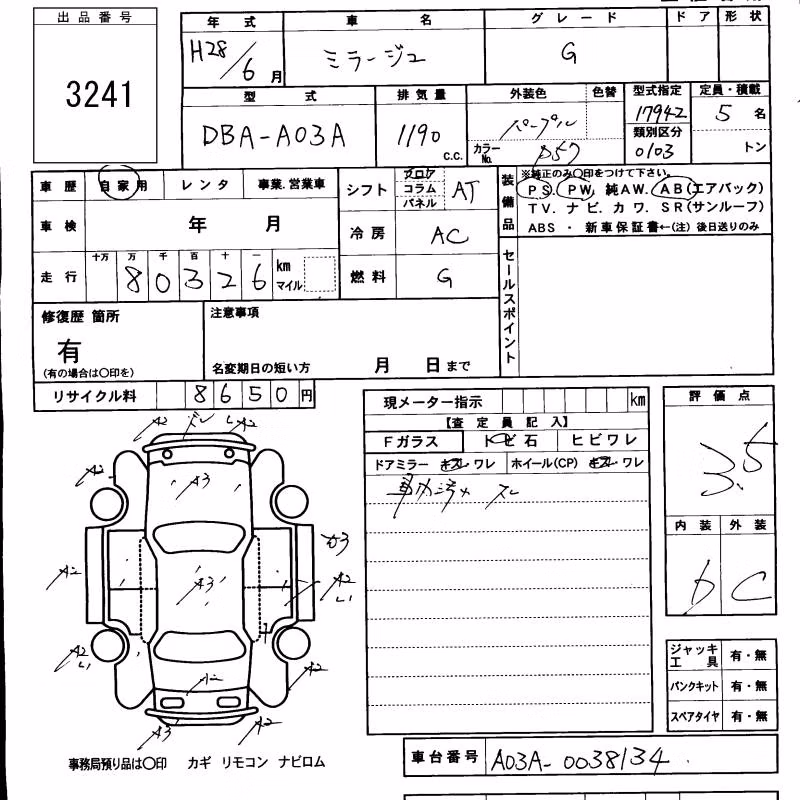 出品番号
3241
年式 車名 グレード ドア 形状
H28/6月 ミラージュ G
型式 排気量 外装色 色替 型式指定 定員・積載
DBA-A03A 1190 c.c. パープル 17942 5 名
類別区分
カラーNo. P57 0103 トン
車歴 自家用 レンタ 事業.営業車 シフト フロア コラム パネル AT
装備品 ※純正のみ〇印をつけて下さい。
PS. PW. 純AW. AB(エアバック)
TV. ナビ. カワ. SR(サンルーフ)
ABS ・ 新車保証書←(注) 後日送りのみ
車検 年 月 冷房 AC
走行 十万 万 千 百 十 一
80326 km マイル 燃料 G
セールスポイント
修復歴 箇所 注意事項
有
(有の場合は〇印を) 名変期日の短い方 月 日まで
リサイクル料 8650円
現メーター指示 km
【査定員記入】
Fガラス トビ石 ヒビワレ
ドアミラー キズ ワレ ホイール(CP) キズ.ワレ
評価点
3.5
内装 外装
b C
A2 A2
A2 A3
A3
A2 A3 A2
A2 A2 A2
A3 A2
ジャッキ工具 有・無
パンクキット 有・無
スペアタイヤ 有・無
事務局預り品は〇印 カギ リモコン ナビロム
車台番号 A03A-0038134